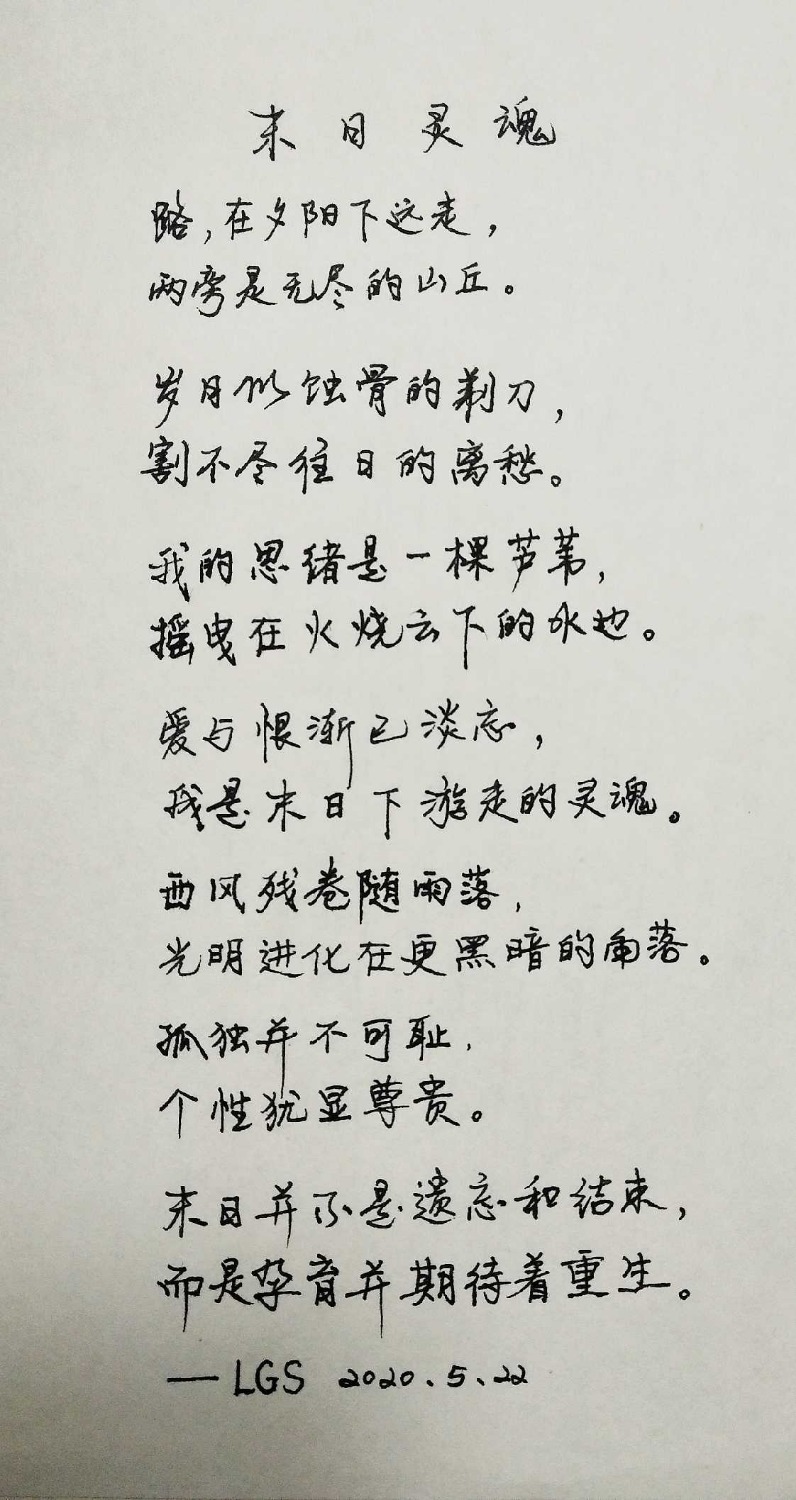 末日灵魂
路,在夕阳下远走,
两旁是无尽的山丘。
岁月似蚀骨的剃刀,
割不尽往日的离愁。
我的思绪是一棵芦苇,
摇曳在火烧云下的水边。
爱与恨渐已淡忘,
我是末日下游走的灵魂。
西风残卷随雨落,
光明进化在更黑暗的角落。
孤独并不可耻,
个性犹显尊贵。
末日并不是遗忘和结束,
而是孕育并期待着重生。
—LGS 2020.5.22